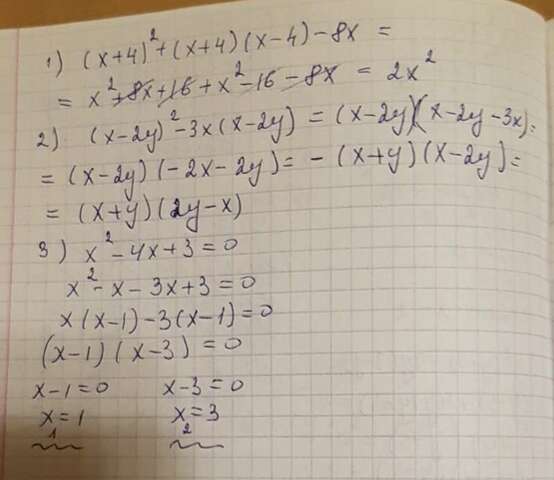 1) (x+4)² + (x+4)(x-4) - 8x =
= x² + 8x + 16 + x² - 16 - 8x = 2x²
2) (x-2y)² - 3x(x-2y) = (x-2y)(x-2y-3x) =
= (x-2y)(-2x-2y) = -(x+y)(x-2y) =
= (x+y)(2y-x)
3) x² - 4x + 3 = 0
x² - x - 3x + 3 = 0
x(x-1) - 3(x-1) = 0
(x-1)(x-3) = 0
x-1=0 x-3=0
x₁=1 x₂=3